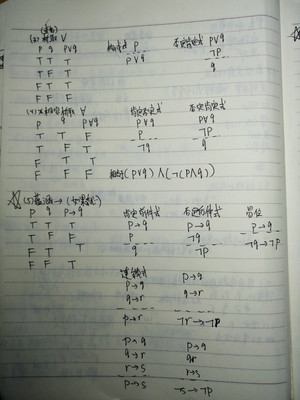 (逻辑)
(3) 析取 ∨
P q P∨q
T T T
T F T
F T T
F F F
附加式 P
P∨q
否定肯定式 P∨q
¬P
q
(4) 不相容析取 ∀
P q P∀q
T T F
T F T
F T T
F F F
肯定否定式
P∀q
P
¬q
否定肯定式
P∀q
¬P
q
相当于(P∨q)∧(¬(P∧q))
(5) 蕴涵→(如果就)
P q P→q
T T T
T F F
F T T
F F T
肯定前件式
P→q
P
q
否定后件式
P→q
¬q
¬P
易位
P→q
¬q→¬P
连锁式
P→q
q→r
P→r
P→q
q→r
¬r→¬P
P→q
q→r
r→s
P→s
P→q
qr
r→s
¬s→¬P